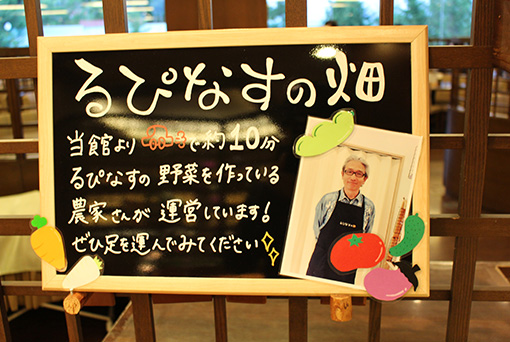 るぴなすの畑
当館より🚗で約10分
るぴなすの野菜を作っている
農家さんが運営しています!
ぜひ足を運んでみてください✨